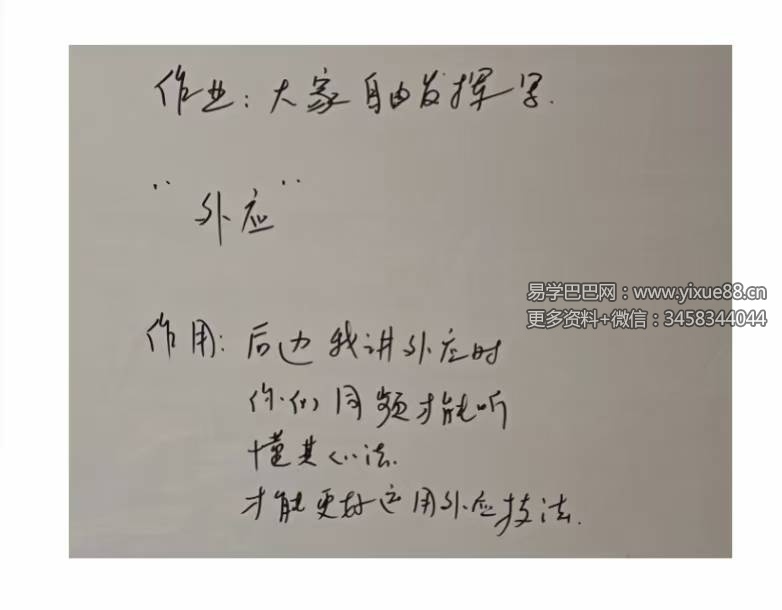 作业：大家自由发挥写.
"外应"
易学巴巴网：www.yixue88.cn
更多资料+微信：3458344044
作用：后边我讲外应时
你们同频才能听
懂其心法.
才能更好运用外应技法.